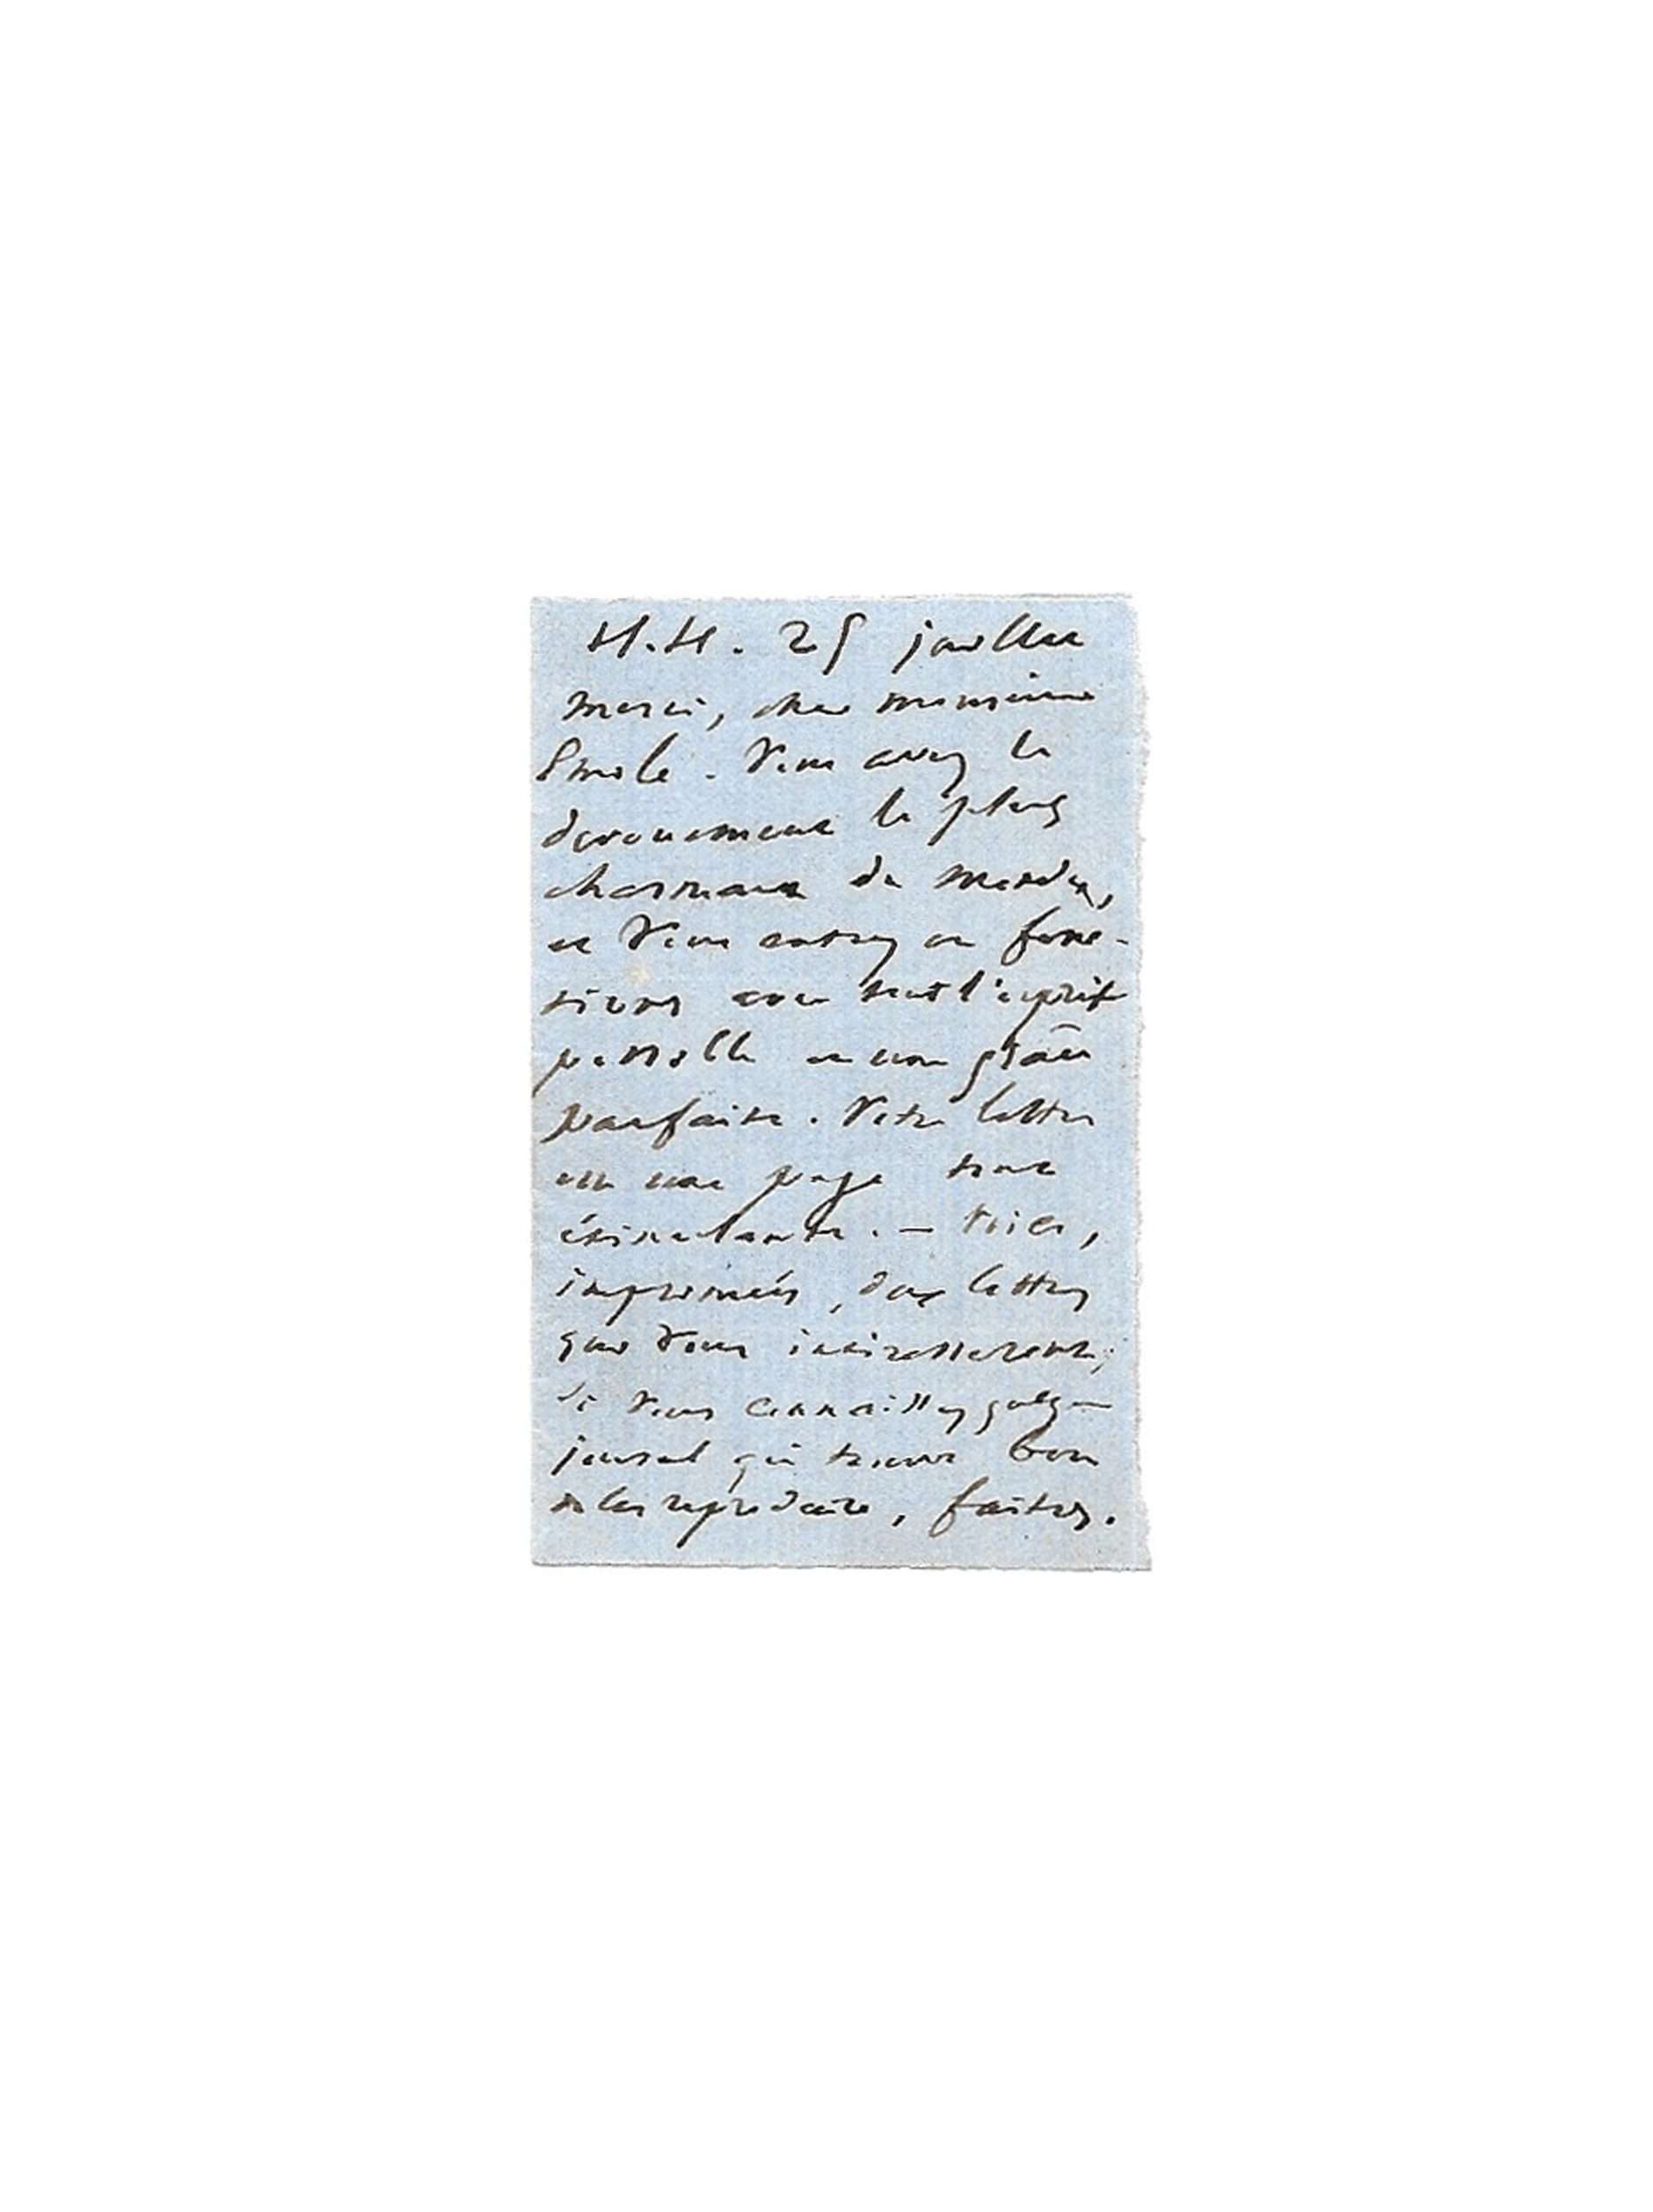 H.H. 25 juillet
Merci, cher monsieur
Emile. Vous avez le
dévouement le plus
charmant du monde,
et vous entrez en fonc-
tions avec tout l'esprit
possible et une grâce
parfaite. Votre lettre
est une page toute
étincelante. — Voici,
imprimées, deux lettres
que vous intéresseront;
si vous connaissez quelque
journal qui trouve bon
de les reproduire, faites.